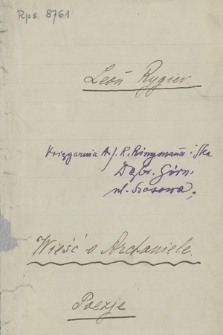 Rps 8761
Leon Rygier
Księgarnia A. J. R. i Ska
Dąbr. Górn.
ul. Szosowa,
Wieść o Archaniele.
Poezje